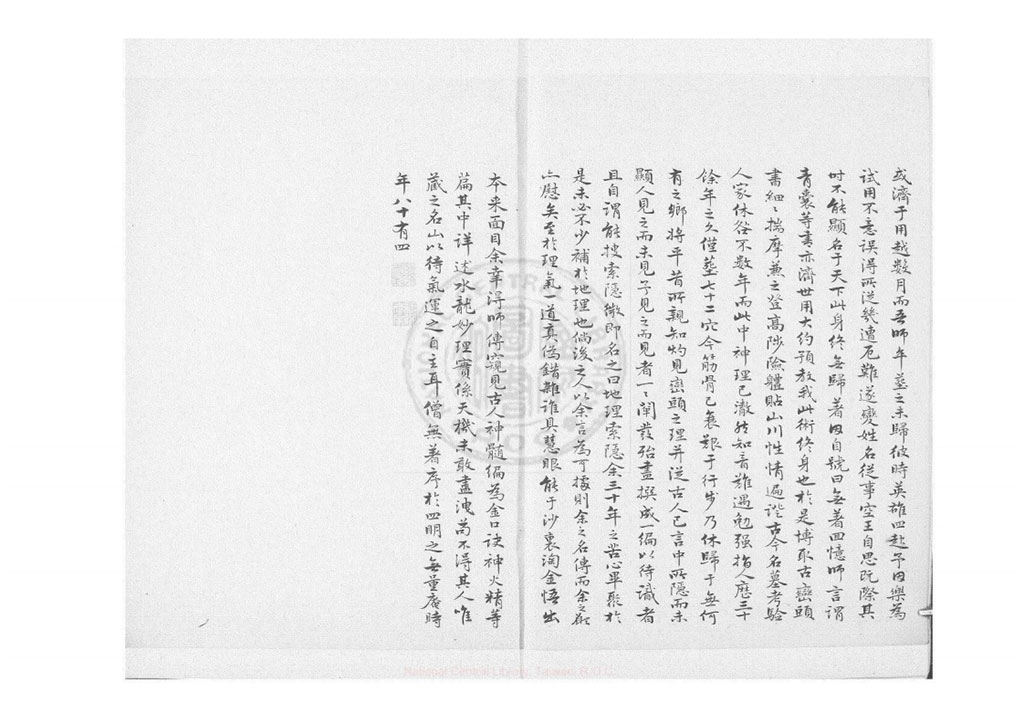 或濟于用越數月而吾師年蓋之未歸彼時英雄四起予因樂為
試用不意誤得所從幾遭厄難遂變姓名從事空王自思既際其
时不能顯名于天下此身終無歸著因自號曰無著回憶師言謂
青囊等書亦濟世用大約預教我此術終身也於是博取古巒頭
書細〻揣摩兼之登高陟險體貼山川性情遍證古今名墓考驗
人家休咎不數年而此中神理已澈然知音難遇勉强指人歷三十
餘年之久僅葬七十二穴今筋骨已衰艱于行步乃休歸于無何
有之鄉將平昔所親知灼見巒頭之理并從古人已言中所隱而未
顯人見之而未見予見之而見者一〻闡發殆盡撰成一編以待識者
且自謂能搜索隱微即名之曰地理索隱余三十年之苦心畢聚於
是未必不少補於地理也倘後之人以余言為可據則余之名傳而余之
亦慰矣至於理氣一道真偽錯雜誰具慧眼能于沙裏淘金悟出
本來面目余幸得師傳窺見古人神髓編為金口訣神火精等
篇其中詳述水龍妙理實係天機未敢盡洩苟不得其人唯
藏之名山以待氣運之自主耳僧無著序於四明之無量庵時
年八十有四
National Central Library, Taiwan, R.O.C.